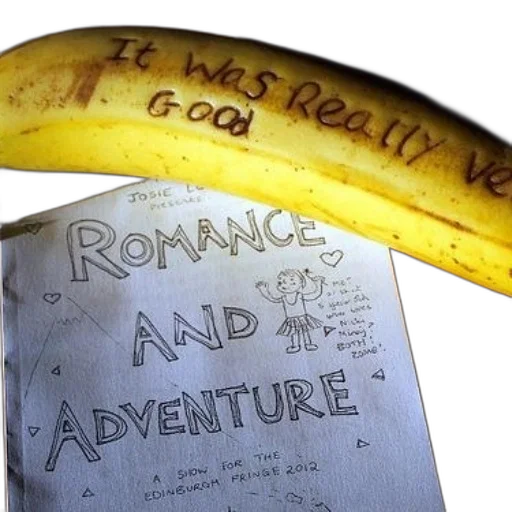 It was Really ve
Good
JOSIE
PRESENTS
ROMANCE
AND
ADVENTURE
ME-
5 year old
who loves
Nicki
Minaj
BOTH!
A SHOW FOR THE
EDINBURGH FRINGE 2012